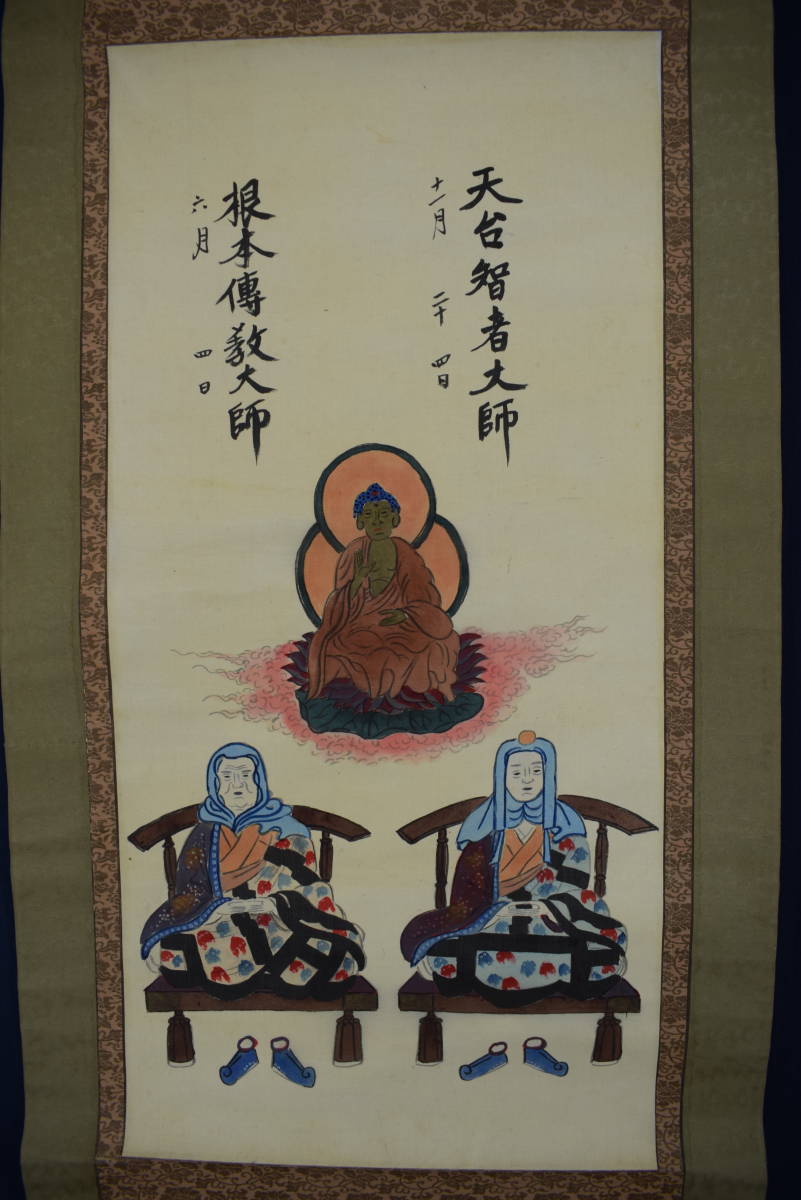 天台智者大師
十一月二十四日
根本傳教大師
六月四日